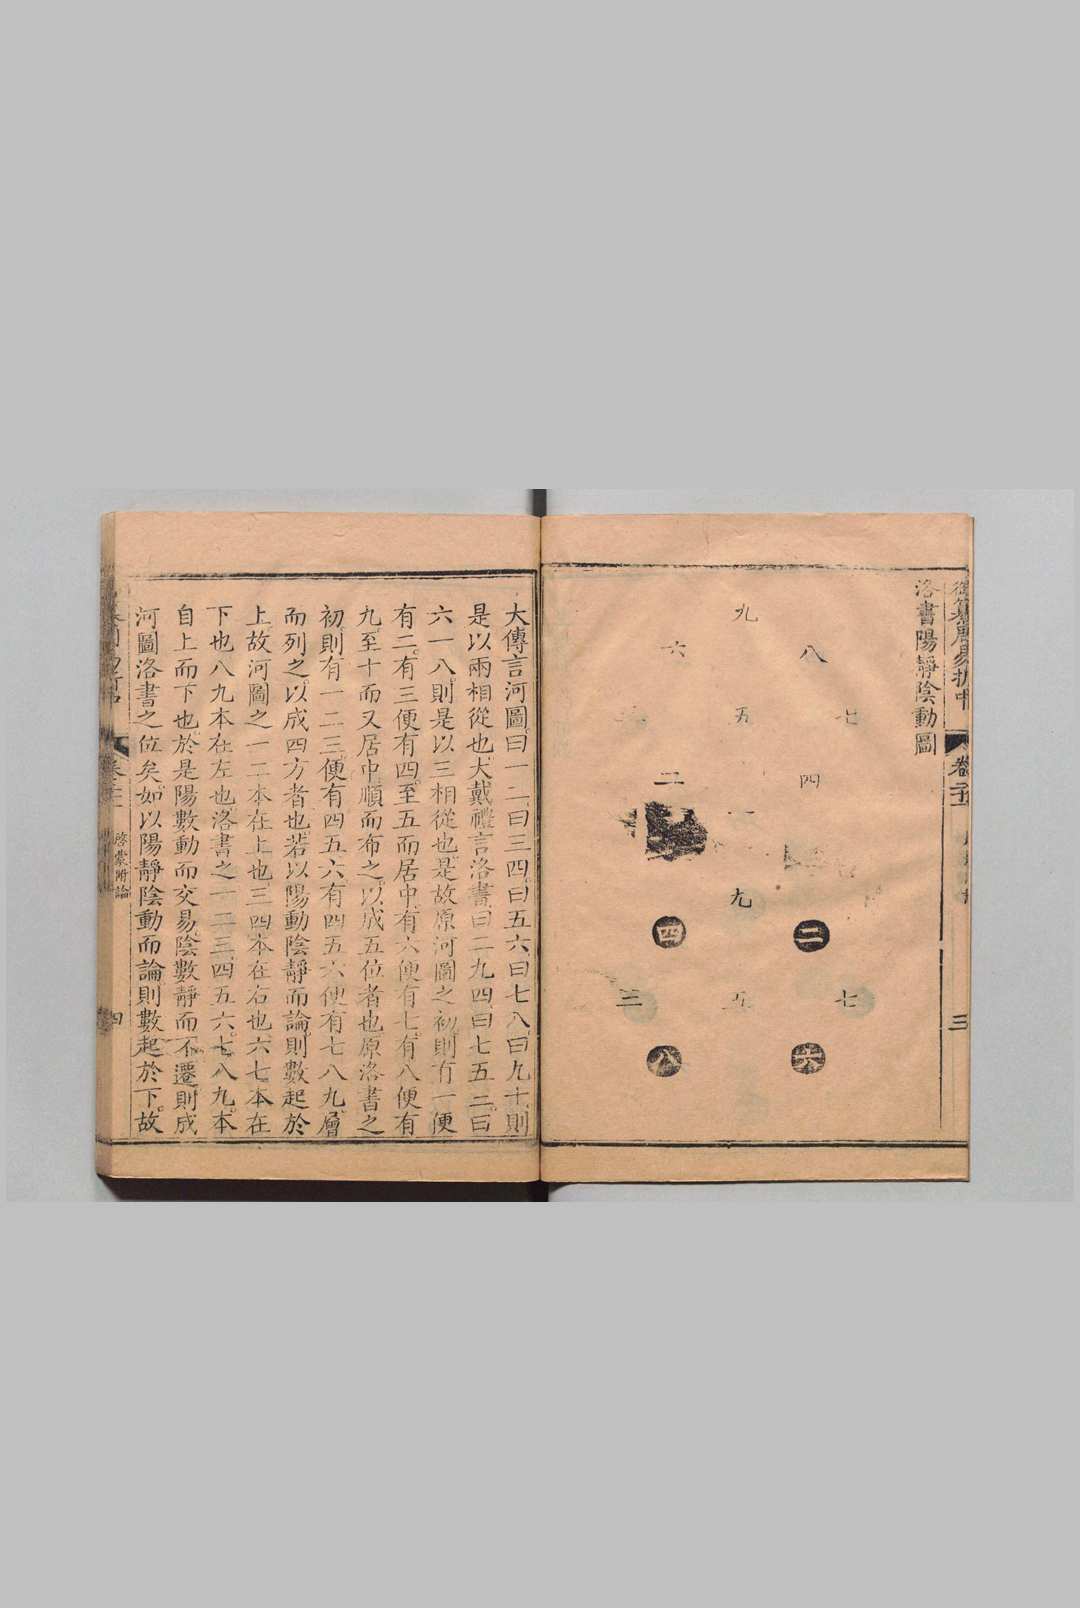 洛書陽靜陰動圖
九
八
六
七
五
四
二
一
九
二
四
七
五
三
六
八
大傳言河圖曰一二曰三四曰五六曰七八曰九十則
是以兩相從也大戴禮言洛書曰二九四曰七五三曰
六一八則是以三相從也是故原河圖之初則有一便
有二有三便有四至五而居中有六便有七有八便有
九至十而又居中順而布之以成五位者也原洛書之
初則有一二三便有四五六有四五六便有七八九層
而列之以成四方者也若以陽動陰靜而論則數起於
上故河圖之一二本在上也三四本在右也六七本在
下也八九本在左也洛書之一二三四五六七八九本
自上而下也於是陽數動而交易陰數靜而不遷則成
河圖洛書之位矣如以陽靜陰動而論則數起於下故
啓蒙附論
四